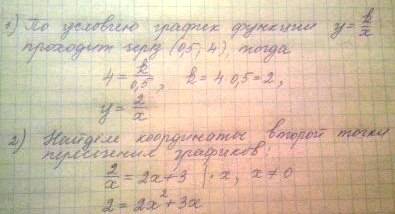 1) По условию график функции y = k/x
проходит через (0,5; 4), тогда
4 = k/0,5, k = 4·0,5 = 2,
y = 2/x
2) Найдём координаты второй точки
пересечения графиков:
2/x = 2x+3 | · x, x ≠ 0
2 = 2x² + 3x